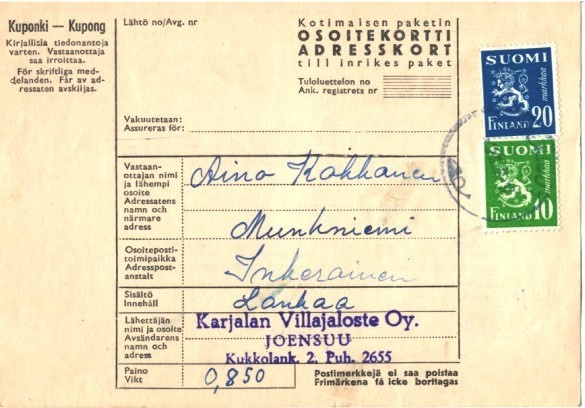 Kuponki — Kupong
Kirjallisia tiedonantoja
varten. Vastaanottaja
saa irroittaa.
För skriftliga med-
delanden. Får av ad-
ressaten avskiljas.
Lähtö no/Avg. nr
Kotimaisen paketin
OSOITEKORTTI
ADRESSKORT
till inrikes paket
Tuloluettelon no
Ank. registrets nr
Vakuutetaan:
Assureras för:
SUOMI
markkaa
FINLAND 20
SUOMI
markkaa
FINLAND 10
Vastaan-
ottajan nimi
ja lähempi
osoite
Adressatens
namn och
närmare
adress
Aino Kokkanen
Munkniemi
Osoiteposti-
toimipaikka
Adresspost-
anstalt
Inkeroinen
Sisältö
Innehåll
Lankaa
Lähettäjän
nimi ja osoite
Avsändarens
namn och
adress
Karjalan Villajaloste Oy.
JOENSUU
Kukkolank. 2. Puh. 2655
Paino
Vikt
0,850
Postimerkkejä ei saa poistaa
Frimärkena få icke borttagas